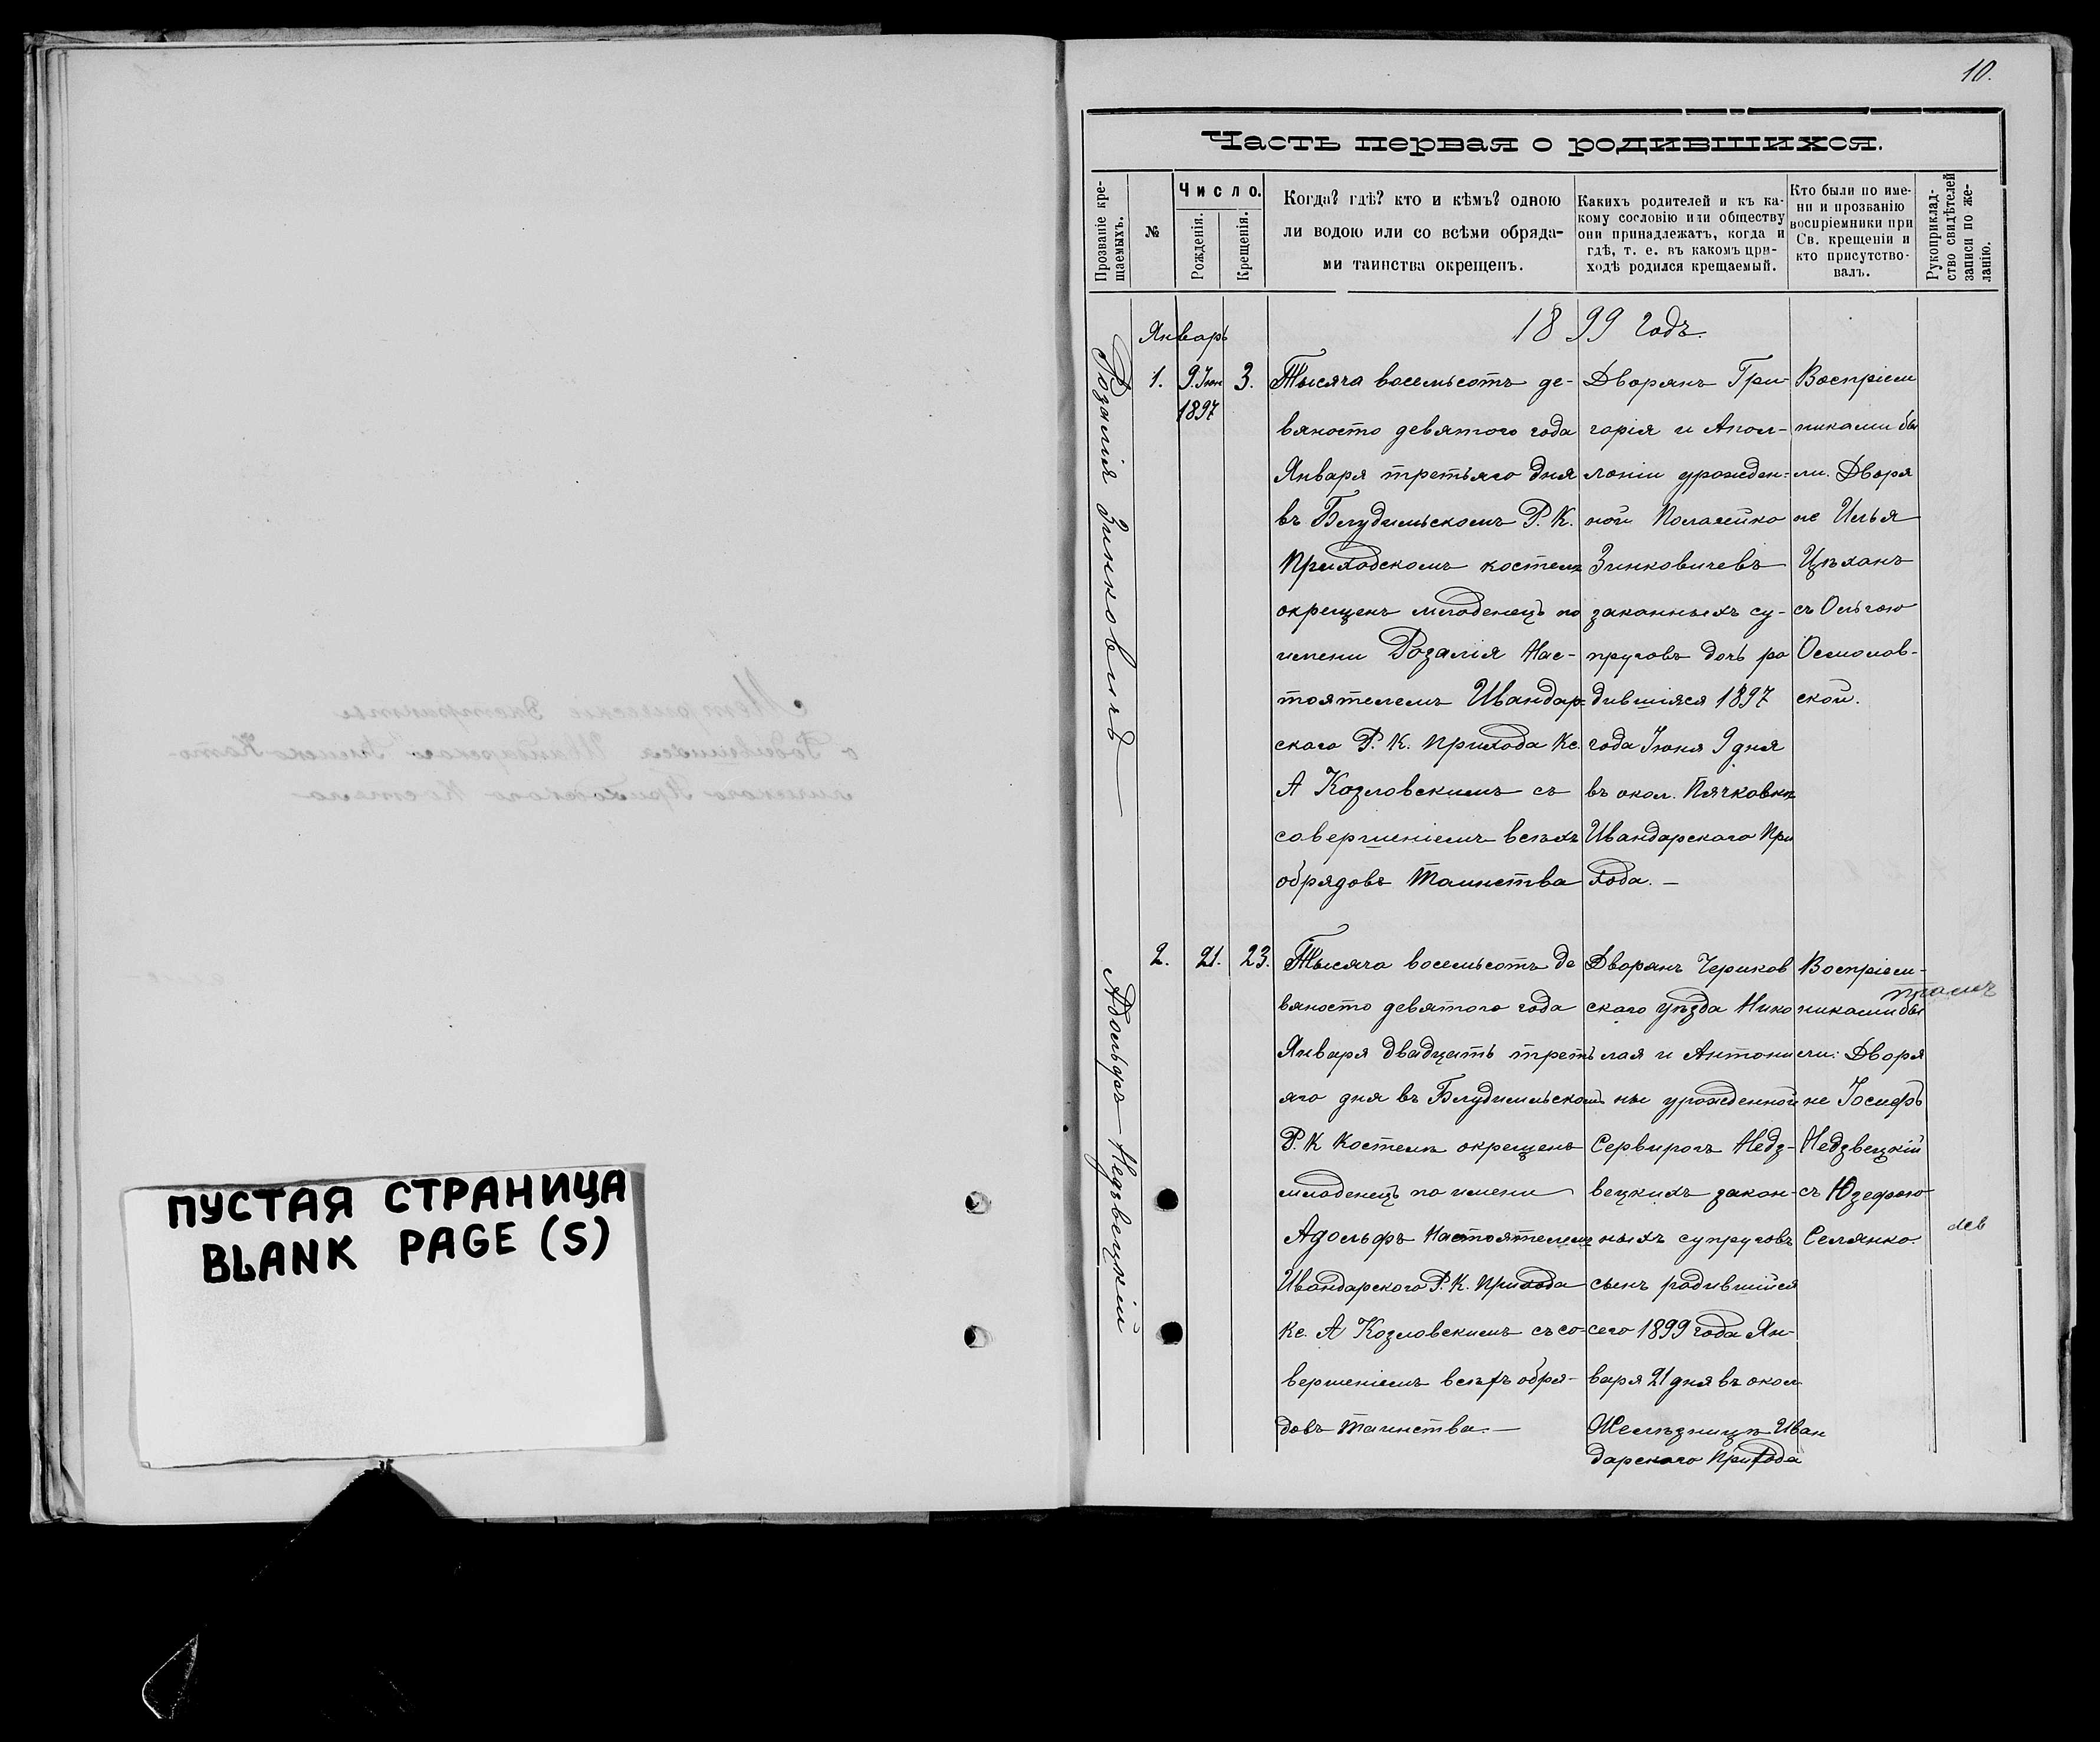 ПУСТАЯ СТРАНИЦА
BLANK PAGE (S)
10.
Часть первая о родившихся.
Прозваніе кре-
щаемыхъ.
№
Число.
Рожденія.
Крещенія.
Когда? гдѣ? кто и кѣмъ? одною
ли водою или со всѣми обряда-
ми таинства окрещенъ.
Какихъ родителей и къ ка-
кому сословію или обществу
они принадлежатъ, когда и
гдѣ, т. е. въ какомъ при-
ходѣ родился крещаемый.
Кто были по име-
ни и прозванію
воспріемники при
Св. крещеніи и
кто присутство-
валъ.
Рукоприклад-
ство свидѣтелей
записи по же-
ланію.
1899 годъ.
Январь
Розалія Зинковичъ
1.
9. Іюн
1897
3.
Тысяча восемьсотъ де-
вяносто девятого года
Января третьяго дня
въ Блудимльскомъ Р. К.
Приходскомъ костелѣ
окрещенъ младенецъ по
имени Розалія Нас-
тоятелемъ Ивандар-
скаго Р. К. прихода Кс.
А Козловскимъ съ
совершеніемъ всѣхъ
обрядовъ Таинства
Дворянъ Гри-
горія и Апол-
лоніи урожден-
ной
Зинковичевъ
законныхъ су-
пруговъ дочь ро
дившіяся 1897
года Іюня 9 дня
въ окол. Пячковкѣ
Ивандарскаго При
хода. —
Воспріем
никами бы
ли. Дворя
не Илья
Цѣханъ
съ Ольгою
Осмолов-
ской.
Адольфъ Недзвецкій
2.
21.
23.
Тысяча восемьсотъ де
вяносто девятого года
Января двадцать треть
яго дня въ Блудимльскомъ
Р. К Костелѣ окрещенъ
младенецъ по имени
Адольфъ Настоятелемъ
Ивандарского Р. К. прихода
Кс. А Козловскимъ съ со-
вершеніемъ всѣхъ обря-
довъ таинства. —
Дворянъ Чериков
скаго уѣзда Нико
лая и Антони
ны урожденной
Сервирогъ Недз-
вецкихъ закон-
ныхъ супруговъ
сынъ родившійся
сего 1899 года Ян-
варя 21 дня въ окол
Желѣзницѣ Иван
дарского Прихода
Воспріем-
никами бы
ли: Дворя
не Іосифъ
Недзвецкій
съ Юзефою
Селянко.